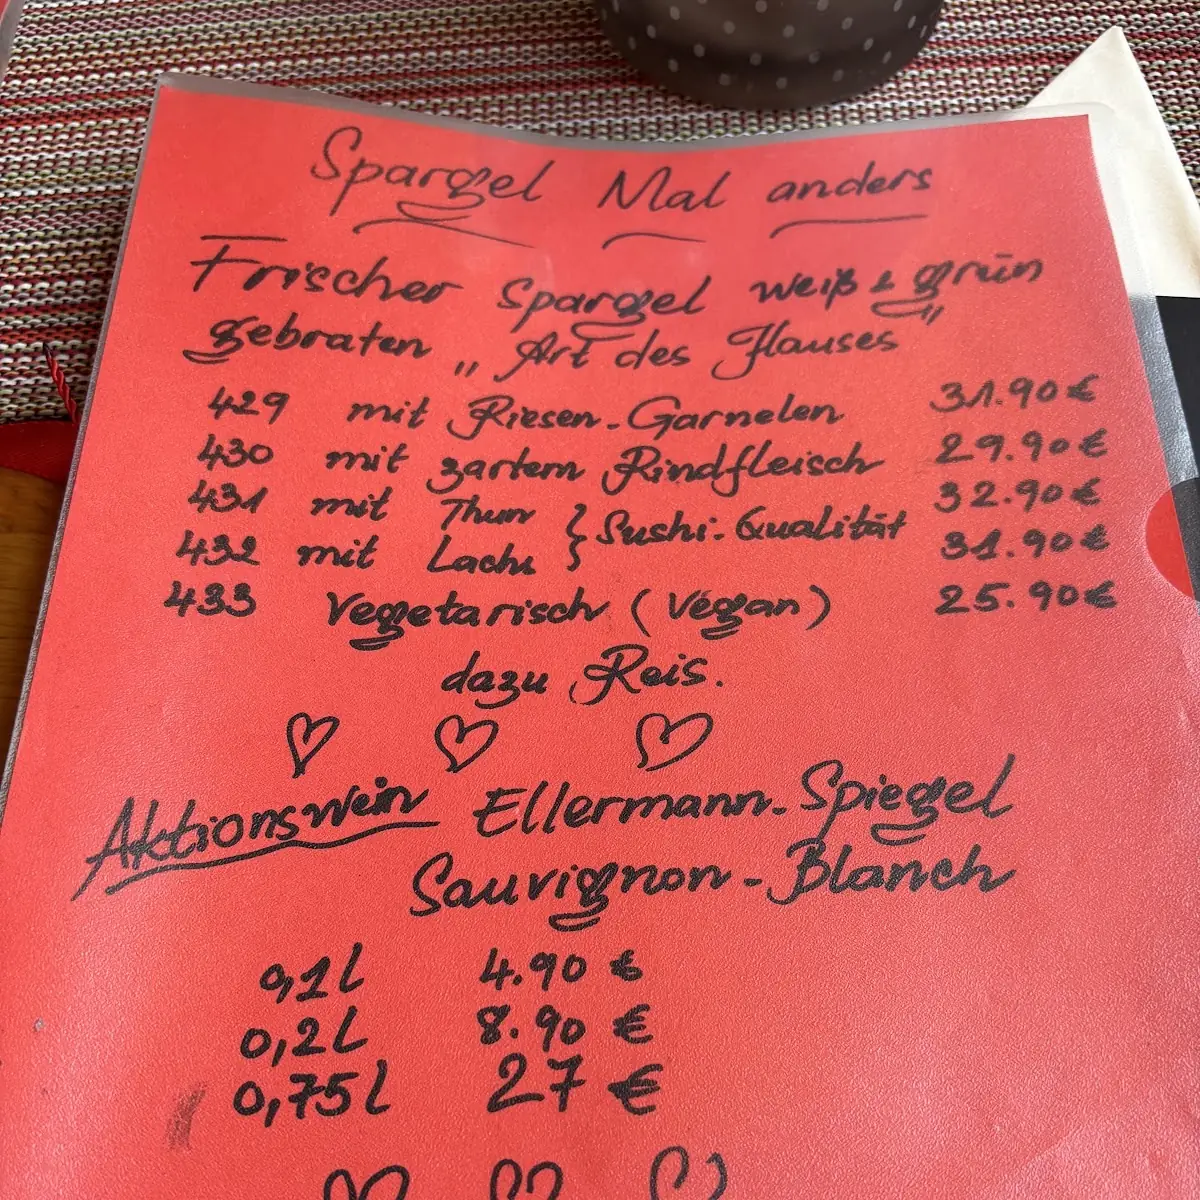 Spargel Mal anders
Frischer Spargel weiß & grün
gebraten „Art des Hauses“
429 mit Riesen-Garnelen 31.90 €
430 mit zartem Rindfleisch 29.90 €
431 mit Thun } Sushi-Qualität 32.90 €
432 mit Lachs 31.90 €
433 Vegetarisch (Végan) 25.90 €
dazu Reis.
Aktionswein Ellermann-Spiegel
Sauvignon-Blanch
0,1l 4.90 €
0,2l 8.90 €
0,75l 27 €